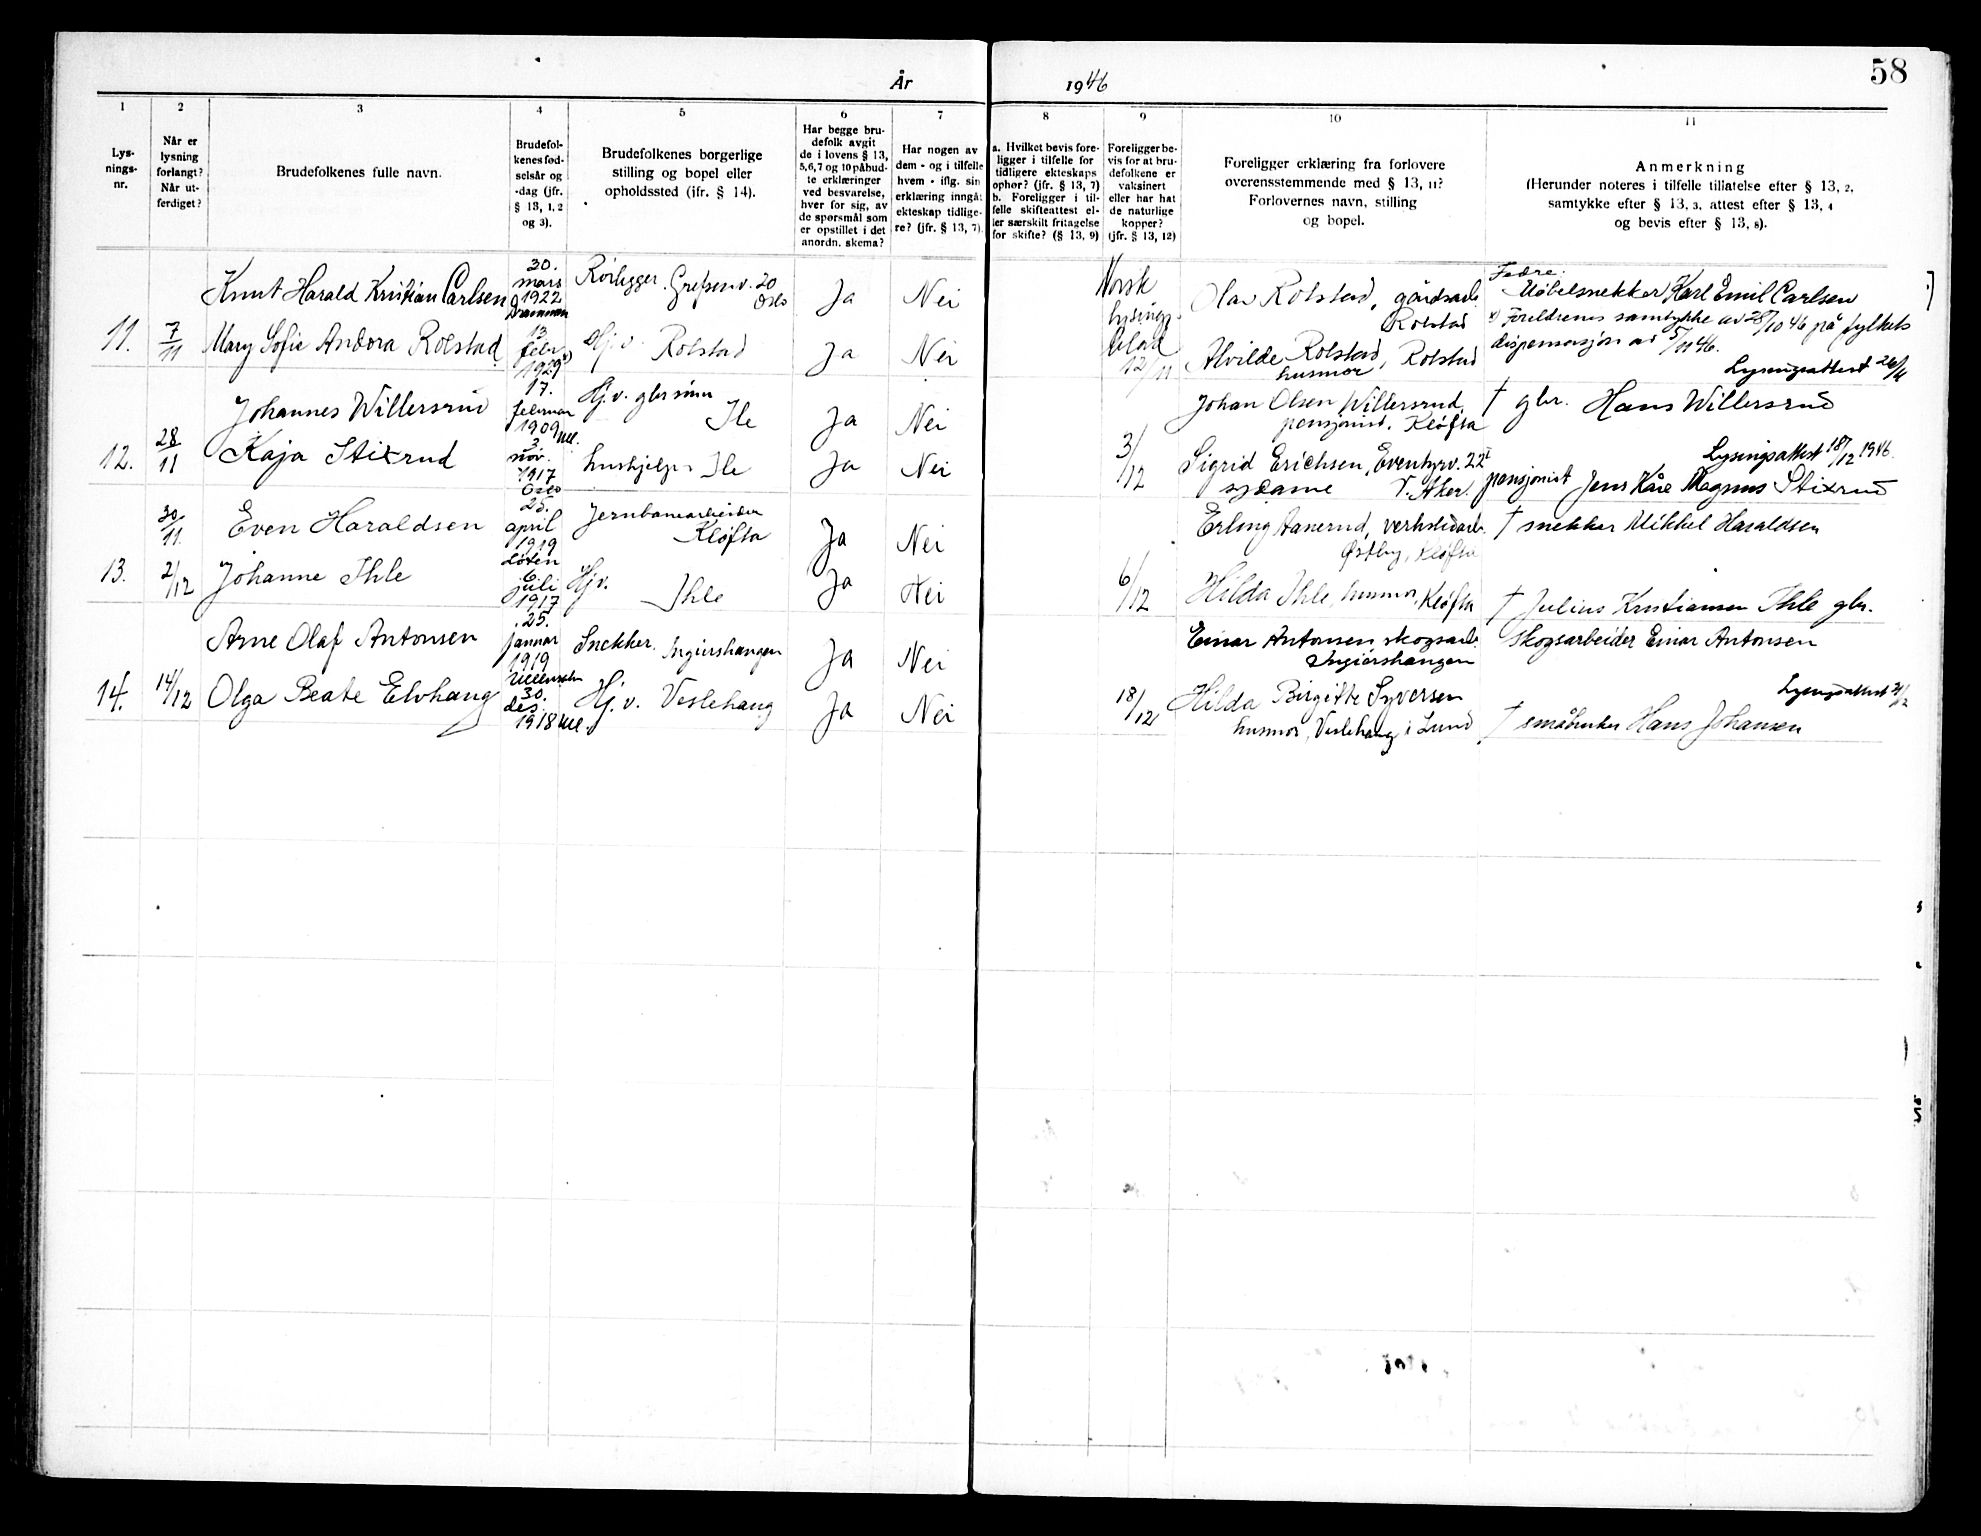 58
År 1946
1 2 3 4 5 6 7 8 9 10 11
Lys-
nings-
nr.
Når er
lysning
forlangt?
Når ut-
ferdiget?
Brudefolkenes fulle navn.
Brudefol-
kenes fød-
selsår og
-dag (jfr.
§ 13, 1, 2
og 3).
Brudefolkenes borgerlige
stilling og bopel eller
opholdssted (jfr. § 14).
Har begge bru-
defolk avgit
de i lovens § 13,
5,6,7 og 10 påbud-
te erklæringer
ved besvarelse,
hver for sig, av
de spørsmål som
er opstillet i det
anordn. skema?
Har nogen av
dem - og i tilfelle
hvem - iflg. sin
erklæring inngåt
ekteskap tidlige-
re? (jfr. § 13, 7).
a. Hvilket bevis fore-
ligger i tilfelle for
tidligere ekteskaps
ophør? (jfr. § 13, 7)
b. Foreligger i til-
felle skifteattest el-
ler særskilt fritagelse
for skifte? (§ 13, 9)
Foreligger be-
vis for at bru-
defolkene er
vaksinert
eller har hat
de naturlige
kopper?
(jfr. § 13, 12)
Foreligger erklæring fra forlovere
overensstemmende med § 13, 11?
Forlovernes navn, stilling
og bopel.
Anmerkning
(Herunder noteres i tilfelle tillatelse efter § 13, 2,
samtykke efter § 13, 3, attest efter § 13, 4
og bevis efter § 13, 8).
11.
7/11
Knut Harald Kristian Carlsen
30.
mars
1922
Drammen
Rørlegger. Grefsenv. 20
Oslo
Ja
Nei
Norsk
lysings
blad
12/11
Olav Rolstad, gårdsarb.
Rolstad
Fedre:
Møbelsnekker Karl Emil Carlsen
Mary Sofie Andora Rolstad
13
febr.
1929 x)
Hj. v. Rolstad
Ja
Nei
Alvilde Rolstad, Rolstad
husmor
x) Foreldrenes samtykke av 28/10 46 på fylkets
dispensasjon av 5/11 46.
Lysningsattest 26/11
12.
28/11
Johannes Willersrud
17.
februar
1909 Ull.
Hj. v. gbr. sønn
Ile
Ja
Nei
3/12
Johan Olsen Willersrud,
pensjonist, Kløfta
† gbr. Hans Willersrud
Kaja Stixrud
3.
nov.
1917
Oslo
hushjelp. Ile
Ja
Nei
Sigrid Erichsen, Eventyrv. 22 I
sydame V. Aker.
Lysingsattest 18/12 1946.
pensjonist Jens Kåre Magnus Stixrud
13.
30/11
2/12
Even Haraldsen
25.
april
1919
Løten
Jernbanearbeider
Kløfta
Ja
Nei
6/12
Erling Aanerud, verkstedarb.
Østby, Kløfta
† snekker Mikkel Haraldsen
Johanne Ihle
6.
juli
1917
Hj. v.
Ihle
Ja
Nei
Hilda Ihle, husmor, Kløfta
† Julius Kristiansen Ihle gbr.
14.
14/12
Arne Olaf Antonsen
25.
januar
1919
Ullensaker
Snekker. Ingiershaugen
Ja
Nei
18/12
Einar Antonsen skogsarb.
Ingiershaugen
Skogsarbeider Einar Antonsen
Olga Beate Elvhaug
30.
des.
1918 Ull.
Hj. v. Veslehaug
Ja
Nei
Hilda Birgitte Syversen
husmor, Veslehaug i Lund
Lysingsattest 21/12
† småbruker Hans Johansen